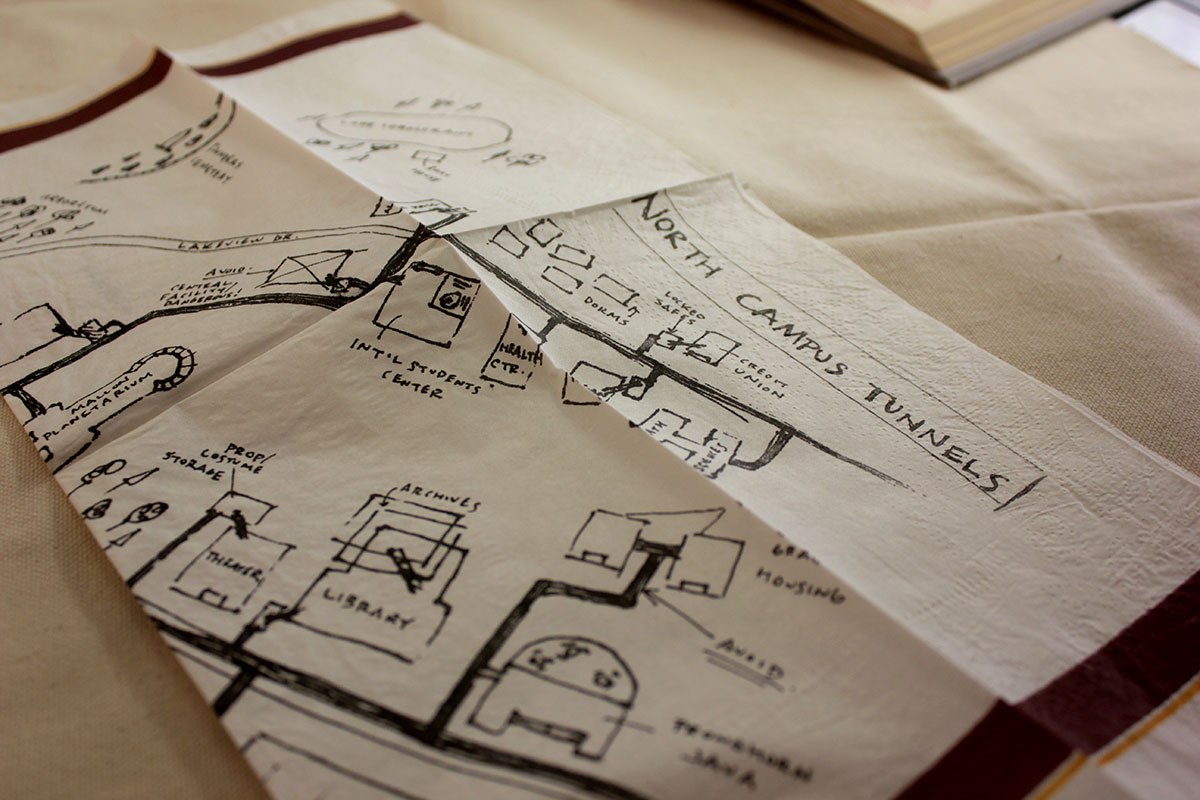 NORTH CAMPUS TUNNELS
CEMETERY
ARBORETUM
LAKEVIEW DR.
AVOID.
CENTRAL
FACILITY/
DANGEROUS!
DORMS
LOCKED
SAFES
CREDIT
UNION
INT'L STUDENTS
CENTER
HEALTH
CTR.
MALLON
PLANETARIUM
PROP/
COSTUME
STORAGE
THEATER
ARCHIVES
LIBRARY
HOUSING
AVOID.
JAVA